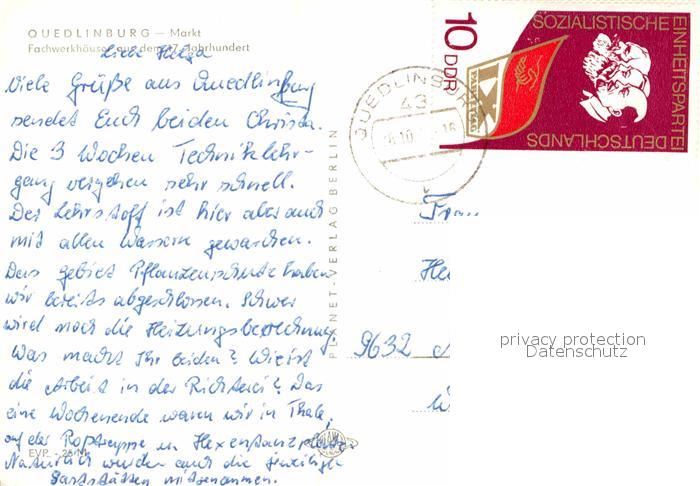 QUEDLINBURG — Markt
Fachwerkhäuser aus dem 17. Jahrhundert
Liebe Helga
Viele Grüße aus Quedlinburg
sendet Euch beiden Christa.
Die 3 Wochen Techniklehr-
gang vergehen sehr schnell.
Der Lehrstoff ist hier aber auch
mit allen Wassern gewaschen.
Das gebiet Pflanzenschutz haben
wir bereits abgeschlossen. Schwer
wird noch die Heizungsberechnung.
Was macht Ihr beiden? Wie ist
die Arbeit in der Richterei? Das
eine Wochenende waren wir in Thale,
auf der Roßtrappe u. Hexentanzplatz.
Natürlich wurden auch die jeweiligen
Gaststätten mitgenommen.
EVP - 25 M
PLANET-VERLAG BERLIN
QUEDLINBURG
43
10
DDR
SOZIALISTISCHE
EINHEITSPARTEI
DEUTSCHLANDS
IX
PARTEITAG
Frau
He
9632
privacy protection
Datenschutz